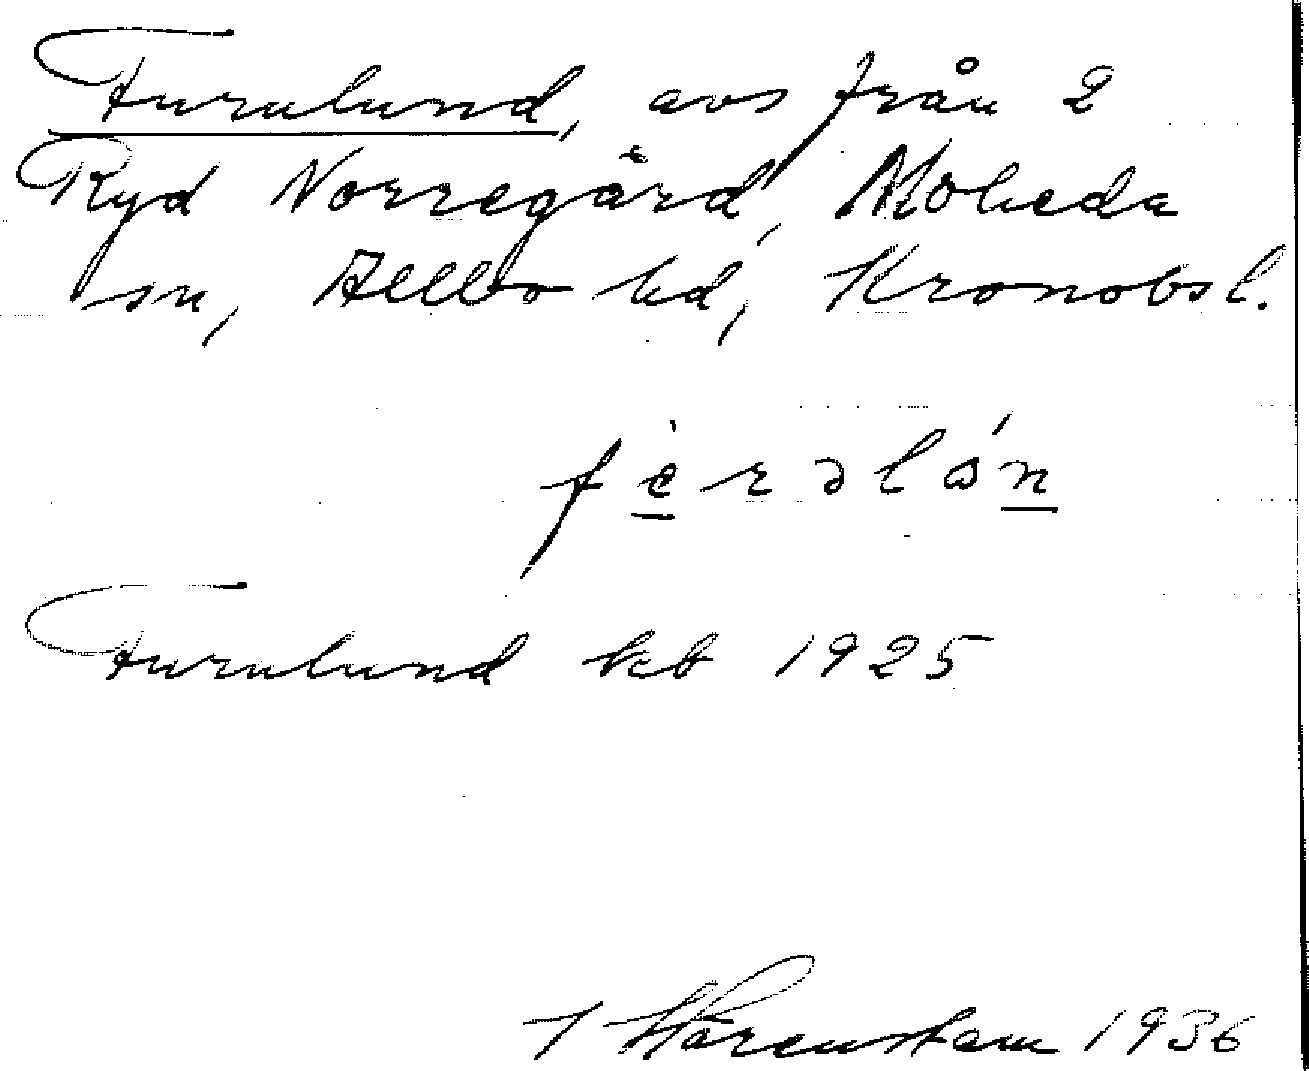 Furulund, avs från 2
Ryd Norregård, Moheda
sn, Allbo hd, Kronobsl.
fèrəlón
Furulund kb 1925